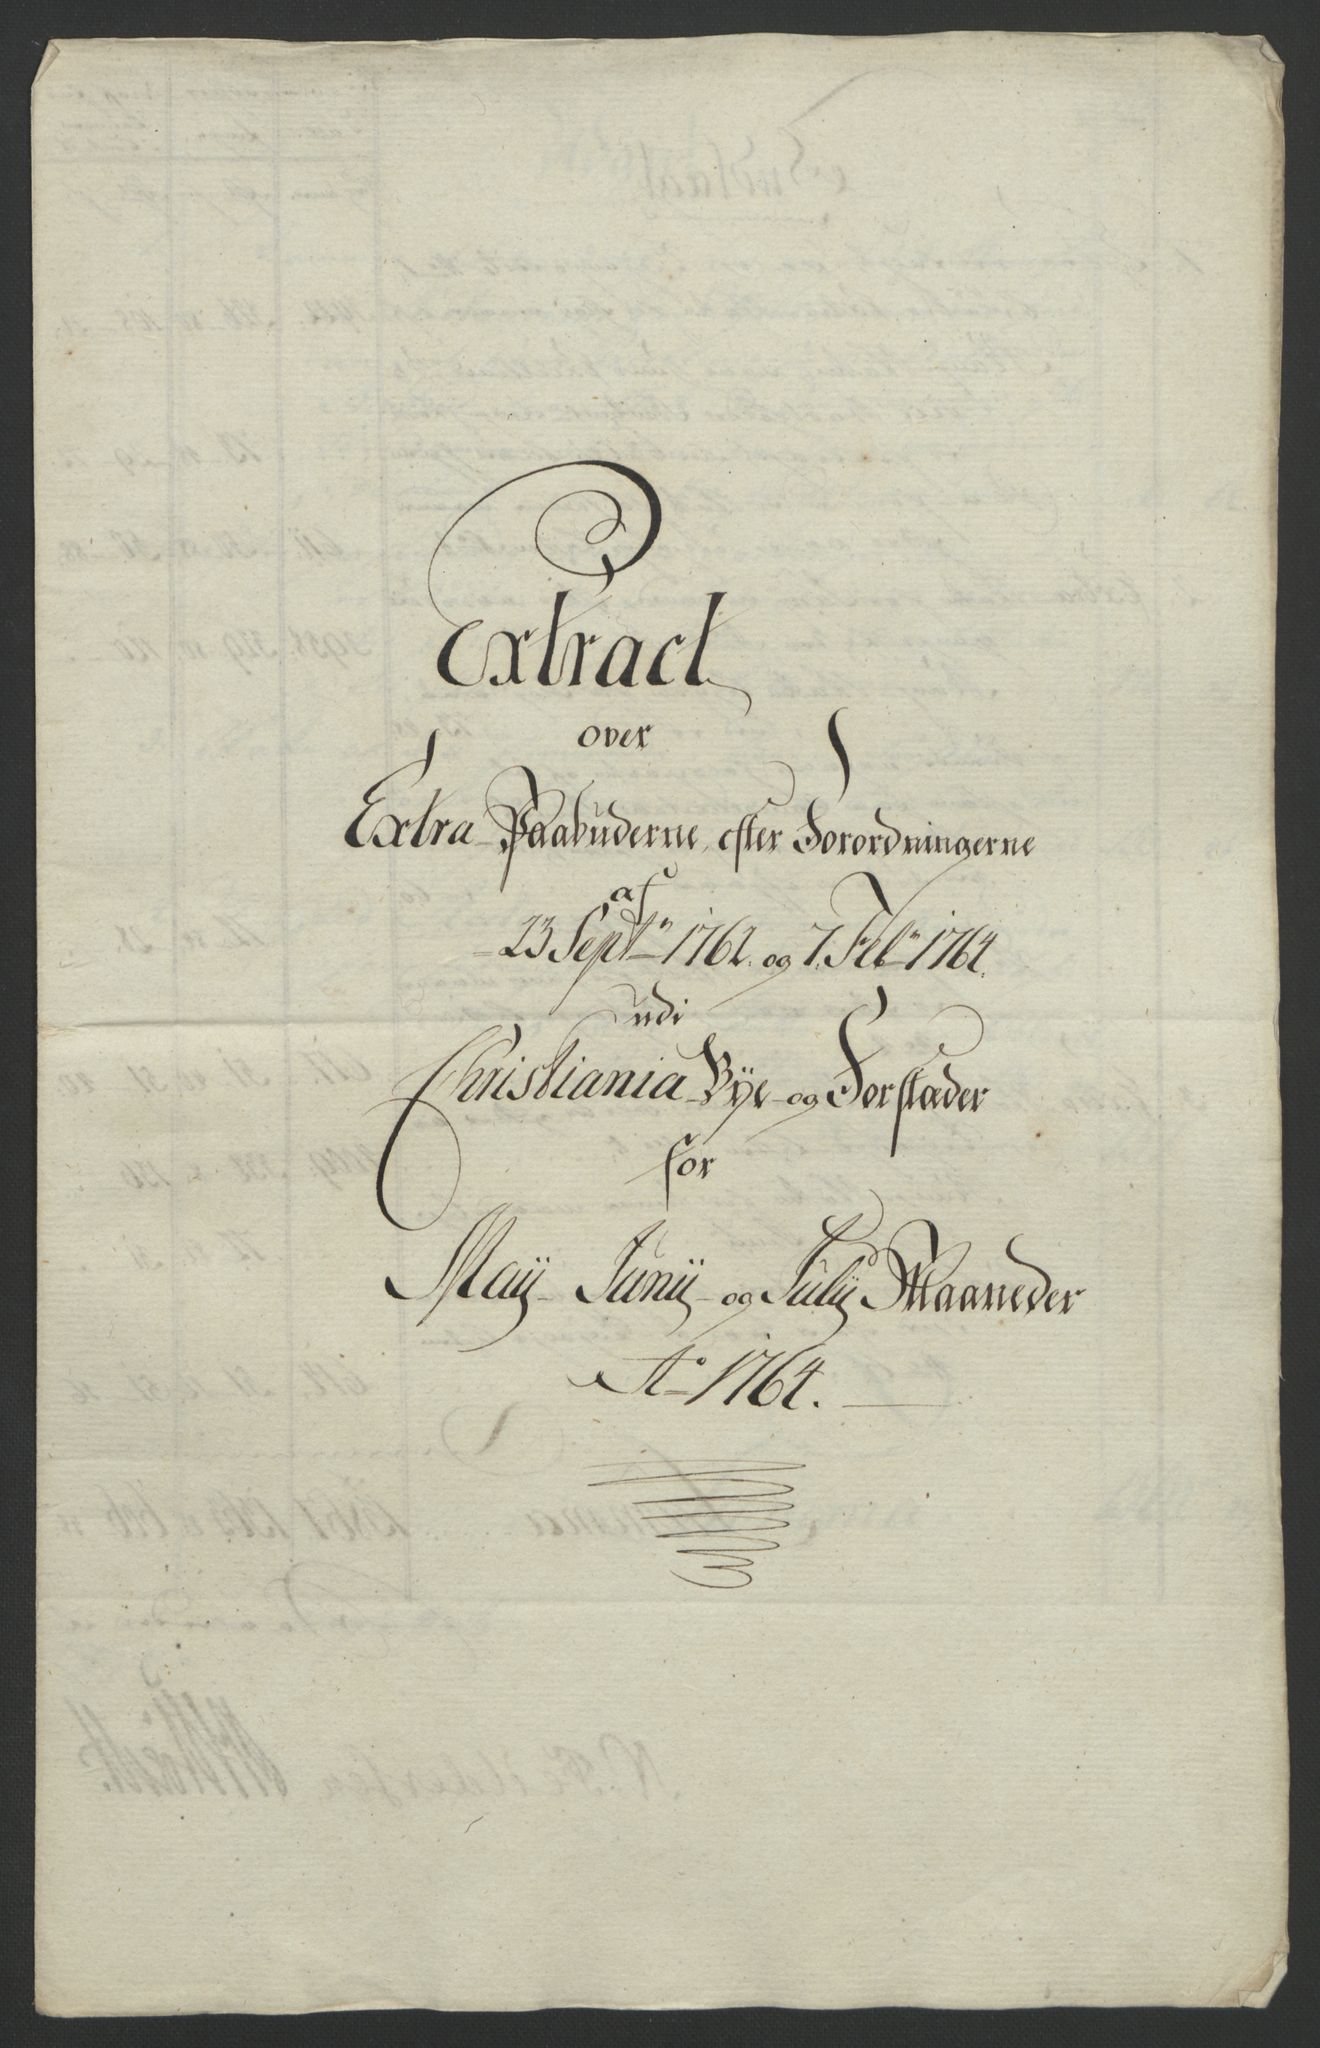 Extract
over
Extra Paabuderne efter Forordningerne
af
23 Septr 1762. og 7. Febr 1764.
udi
Christiania Bÿe og Forstæder
for
Maÿ Junÿ og Julÿ Maaneder
Ao 1764.